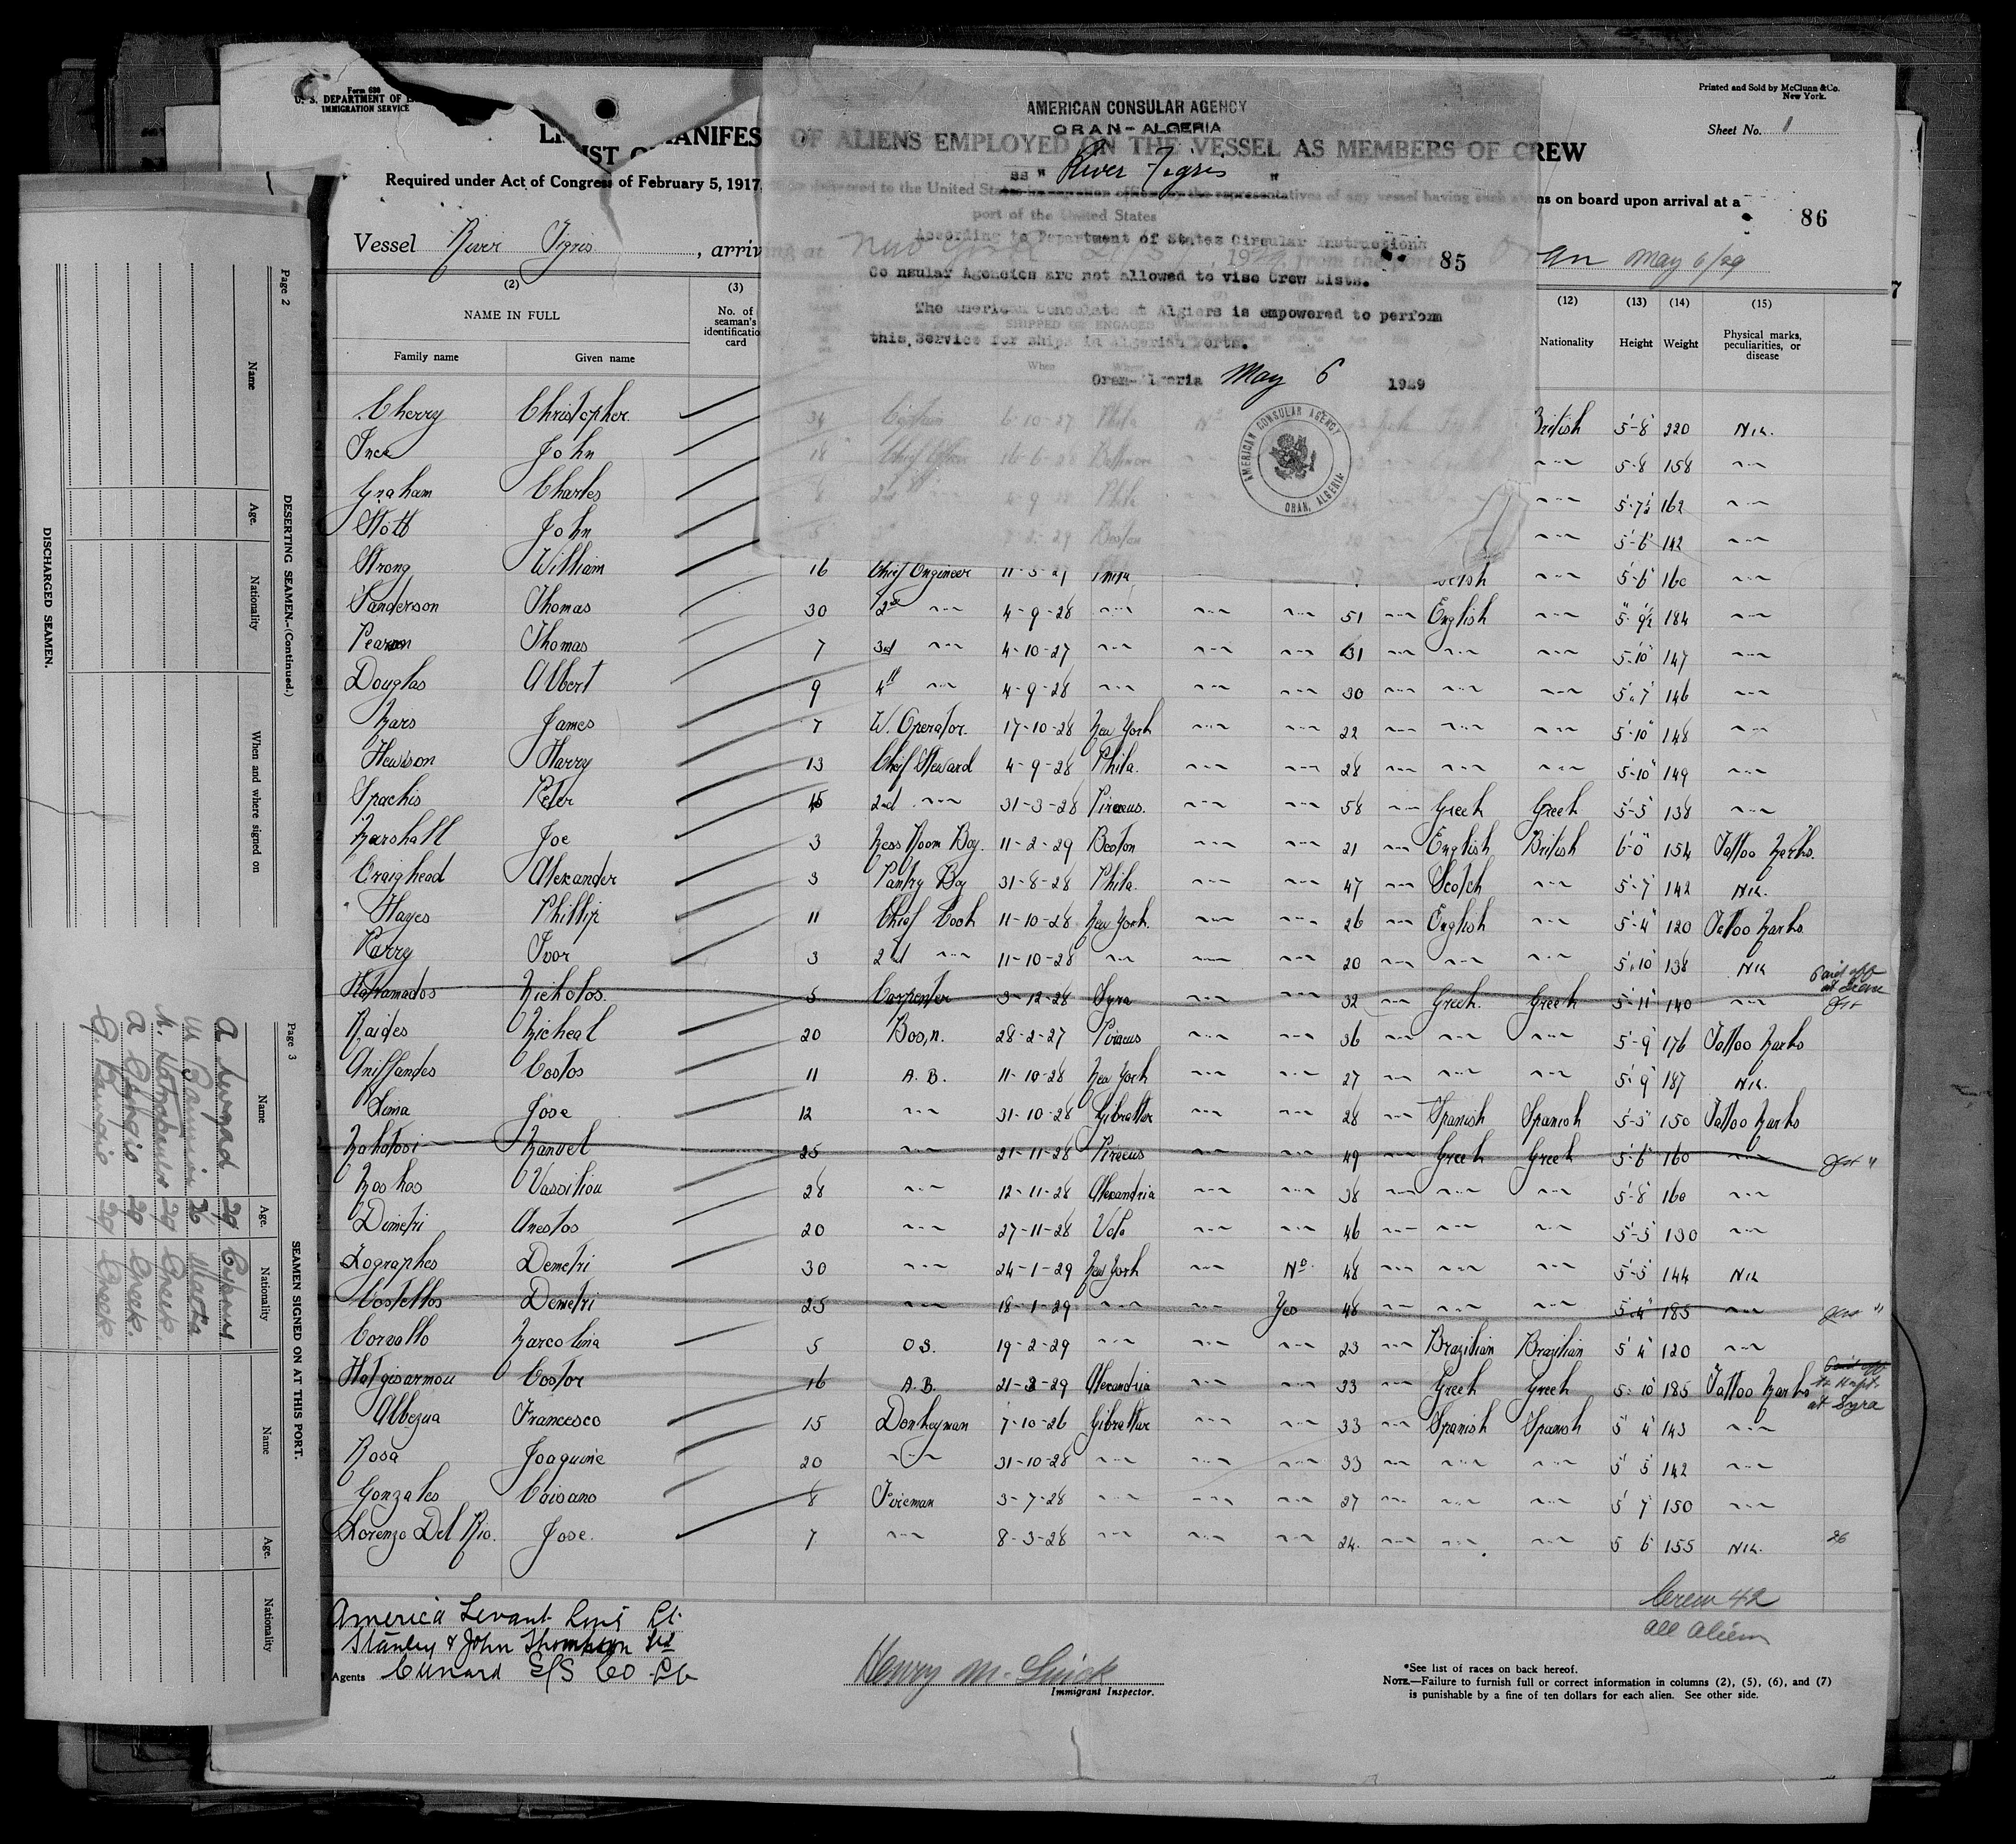 Form 680
U. S. DEPARTMENT OF
IMMIGRATION SERVICE
Printed and Sold by McClunn & Co.
New York.
Sheet No. 1
OF ALIENS EMPLOYED ON THE VESSEL AS MEMBERS OF CREW
Required under Act of Congress of February 5, 1917,
ns on board upon arrival at a
port of the United States
86
AMERICAN CONSULAR AGENCY
ORAN - ALGERIA
ss " River Tigris "
According to Department of States Circular Instructions
85
Co nsular Agencies are not allowed to vise Crew Lists.
The American Consulate at Algiers is empowered to perform
this Service for ships in Algerian Ports.
Oran-Algeria May 6 1929
AMERICAN CONSULAR AGENCY
ORAN, ALGERIA
Vessel River Tigris, arriving at New York
from the port
Oran May 6/29
(2) (3) (12) (13) (14) (15)
NAME IN FULL
Family name Given name
No. of seaman's identification card
SHIPPED OR ENGAGED
When Where
Nationality Height Weight Physical marks, peculiarities, or disease
Cherry Christopher 34 Captain 6-10-27 Phila British 5-8 220 Nil.
Ince John 18 Chief Officer Baltimore ~~ 5-8 158 ~~
Graham Charles 8 2nd Phila ~~ 5-7½ 162 ~~
Stott John 5 Boston ~~ 5-6 142 ~~
Strong William 16 Chief Engineer 11-5-27 Phila ~~ 5-6 160 ~~
Sanderson Thomas 30 2nd ~~ 4-9-28 ~~ ~~ ~~ 51 ~~ English ~~ 5-9½ 184 ~~
Pearson Thomas 7 3rd ~~ 4-10-27 ~~ ~~ ~~ 31 ~~ ~~ ~~ 5-10 147 ~~
Douglas Albert 9 4th ~~ 4-9-28 ~~ ~~ ~~ 30 ~~ ~~ ~~ 5-7 146 ~~
Mars James 7 W. Operator. 17-10-28 New York ~~ ~~ 22 ~~ ~~ ~~ 5-10 148 ~~
Hewson Harry 13 Chief Steward 4-9-28 Phila. ~~ ~~ 28 ~~ ~~ ~~ 5-10 149 ~~
Spachis Peter 45 2nd ~~ 31-3-28 Piraeus. ~~ ~~ 58 ~~ Greek Greek 5-5 138 ~~
Marshall Joe 3 Mess Room Boy. 11-2-29 Boston ~~ ~~ 21 ~~ English British 6-0 154 Tattoo Marks.
Craighead Alexander 3 Pantry Boy 31-8-28 Phila. ~~ ~~ 47 ~~ Scotch ~~ 5-7 142 Nil.
Hayes Phillip 11 Chief Cook 11-10-28 New York. ~~ ~~ 26 ~~ English ~~ 5-4 120 Tattoo Marks
Parry Ivor 3 2nd ~~ 11-10-28 ~~ ~~ ~~ 20 ~~ ~~ ~~ 5-10 138 Nil
Katramados Nicholos. 5 Carpenter 3-12-28 Syra ~~ ~~ 32 ~~ Greek. Greek 5-11 140 ~~ Paid off at
Raides Micheal 20 Bos,n. 28-2-27 Piraeus ~~ ~~ 36 ~~ ~~ ~~ 5-9 176 Tattoo Marks
Aniffandes Costos 11 A.B. 11-10-28 New York ~~ ~~ 27 ~~ ~~ ~~ 5-9 187 Nil.
Lema Jose 12 ~~ 31-10-28 Gibraltar ~~ ~~ 28 ~~ Spanish Spanish 5-5 150 Tattoo Marks
Manuel 25 ~~ 21-11-28 Piraeus ~~ ~~ 49 ~~ Greek Greek 5-6 160 ~~ "
Moskos Vassiliou 28 ~~ 12-11-28 Alexandria ~~ ~~ 38 ~~ ~~ ~~ 5-8 160 ~~
Dimetri Anestos 20 ~~ 27-11-28 Volo ~~ ~~ 46 ~~ ~~ ~~ 5-5 130 ~~
Zographos Demetri 30 ~~ 24-1-29 New York ~~ No. 48 ~~ ~~ ~~ 5-5 144 Nil
Costellos Demetri 25 ~~ 18-1-29 ~~ ~~ Yes 48 ~~ ~~ ~~ 5-4 185 ~~ "
Corvallo Marcolina 5 O.S. 19-2-29 ~~ ~~ ~~ 23 ~~ Brazilian Brazilian 5 4 120 ~~
Hatgisarmou Costor 16 A.B. 21-3-29 Alexandria ~~ ~~ 33 ~~ Greek Greek 5-10 185 Tattoo Marks Paid off at Syra
Albezua Francesco 15 Donkeyman 7-10-26 Gibraltar ~~ ~~ 33 ~~ Spanish Spanish 5 4 143 ~~
Rosa Joaquine 20 ~~ 31-10-28 ~~ ~~ ~~ 33 ~~ ~~ ~~ 5 5 142 ~~
Gonzales Caisano 8 Fireman 3-7-28 ~~ ~~ ~~ 27 ~~ ~~ ~~ 5 7 150 ~~
Lorenzo Del Rio. Jose. 7 ~~ 8-3-28 ~~ ~~ ~~ 24. ~~ ~~ ~~ 5 6 155 Nil. 26
Crew 42
all alien
America Levant Line Lt.
Stanley & John Thompson Ltd
Agents Cunard S/S Co Lt
Immigrant Inspector.
*See list of races on back hereof.
NOTE.—Failure to furnish full or correct information in columns (2), (5), (6), and (7)
is punishable by a fine of ten dollars for each alien. See other side.
Page 2
DESERTING SEAMEN.—(Continued.)
Name Age. Nationality When and where signed on
DISCHARGED SEAMEN.
Page 3
SEAMEN SIGNED ON AT THIS PORT.
Name Age. Nationality Name Age. Nationality
29
36 Malta
29 Greek
29 Greek.
29 Greek